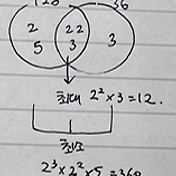 36
2 2 2
5 3 3
최대 2²×3=12.
최소
2³×3²×5=360